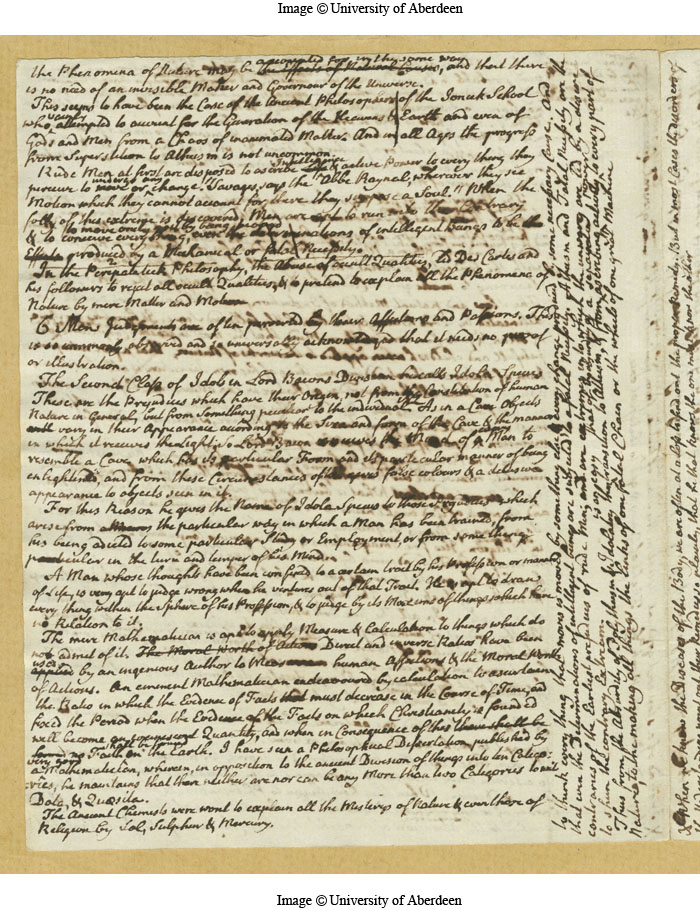 Image © University of Aberdeen
the Phenomena of Nature may be accounted for in the same way the effects of Natural Causes, and that there
is no need of an invisible Maker and Governour of the Universe.
This seems to have been the Case of the Ancient Philosophers of the Ionick School
who vainly attempted to account for the Generation of the Heavens & Earth and even of
Gods and Men from a Chaos of inanimate Matter. And in all Ages the progress
from Superstition to Atheism is not uncommon.
Rude Men at first are disposed to ascribe Intelligence & active Power to every thing they
perceive to move or undergo any change. Savages, says the Abbe Raynal, wherever they see
Motion which they cannot account for there they suppose a Soul. When the
folly of this extreme is discovered, Men are apt to run into the Contrary
& to conceive every thing, even the determinations of intelligent beings to be
Effects produced by a Mechanical or fatal Necessity.
In the Peripatetick Philosophy, the Abuse of occult Qualities, led Des Cartes and
his followers to reject all occult Qualities, & to pretend to explain all the Phenomena of
Nature by mere Matter and Motion.
6 Mens Judgments are often perverted by their Affections and Passions. This
is so commonly observed and so universally acknowledged that it needs no proof
or illustration.
The Second Class of Idols in Lord Bacons Division he calls Idola Specus
These are the Prejudices which have their Origin, not from the Constitution of human
Nature in General, but from Something peculiar to the individual. As in a Cave objects
vary in their Appearance according to the Size and form of the Cave & the manner
in which it receives the light; So Lord Bacon conceives the Mind of a Man to
resemble a Cave, which has its particular Form and its particular manner of being
enlightned, and from these Circumstances often gives false colours & a delusive
appearance to objects seen in it.
For this Reason he gives the Name of Idola Specus to those prejudices which
arise from the particular way in which a Man has been trained, from
his being adicted to some particular Study or Employment, or from something
particular in the turn and temper of his Mind.
A Man whose thoughts have been confined to a certain trait by his Profession or manner
of Life, is very apt to judge wrong when he ventures out of that Trait. He is apt to draw
every thing within the Sphere of his Profession, & to judge by its Maxims of things which have
no Relation to it.
The mere Mathematician is apt to apply Measure & Calculation to things which do
not admit of it. The Moral Worth of Actions Direct and inverse Ratios have been
used applied by an ingenious Author to Measure human Affections & the Moral Worth
of Actions. An eminent Mathematician endeavoured by calculation to ascertain
the Ratio in which the Evidence of Facts must decrease in the Course of Time, and
fixed the Period when the Evidence of the Facts on which Christianity is founded
will become an evanescent Quantity, and when in Consequence of this there shall be
no Faith on the Earth. I have seen a Philosophical Dissertation published by
a very good Mathematician, wherein, in opposition to the ancient Division of things into ten Catego-
ries, he maintains that there neither are nor can be any More than two Categories to wit
Data, & Quæsita.
The Ancient Chemists were wont to explain all the Misterys of Nature & even those of
Religion by Sal, Sulphur & Mercury.
to think every thing that moves is moved by something else & every change produced by some necessary Cause. And
that even the Determinations of intelligent beings are subjected to a fatal Necessity. Atheism and Fatal Necessity are the
contraries of the Early prejudices of rude Men; and
to shun the contrary Extream.
Thus from the Absurdity of Polytheism & Idolatry the transition to Atheism, & from ascribing activity to every part of
Nature, to the making all things the Links of one fatal Chain or the wheels of one great Machine
Image © University of Aberdeen